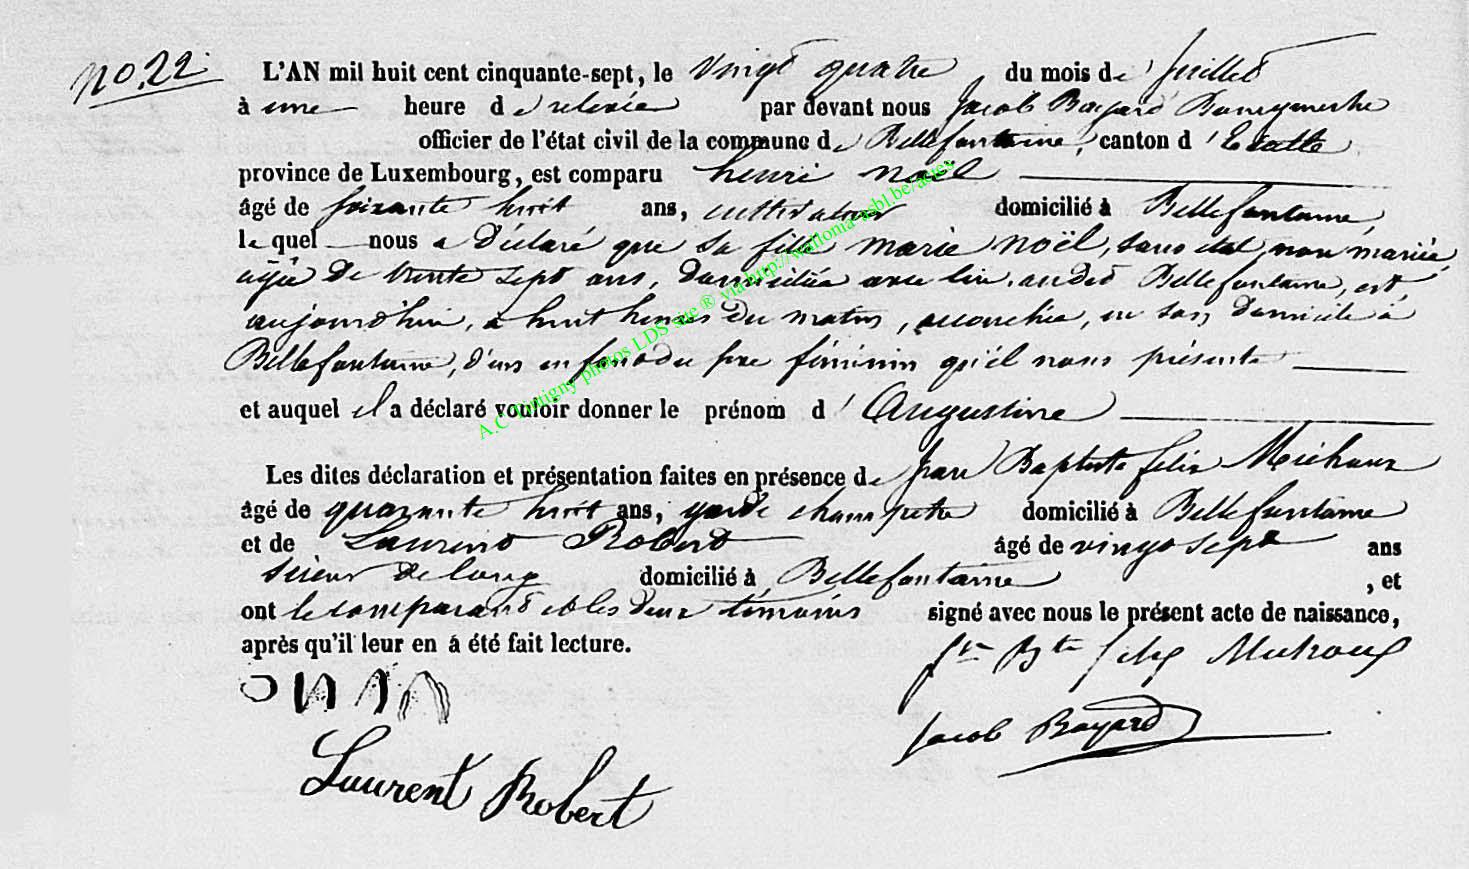 no. 22
L'AN mil huit cent cinquante-sept, le vingt quatre du mois de Juillet
à une heure de relevée par devant nous Jacob Bayard Bourgmestre
officier de l'état civil de la commune de Bellefontaine, canton d'Etalle
province de Luxembourg, est comparu henri noël
âgé de soixante huit ans, cultivateur domicilié à Bellefontaine
lequel nous a déclaré que sa fille marie noël, sans etat, non mariée
agée de trente sept ans, domiciliée avec lui, audit Bellefontaine, est
aujourd'hui, à huit heures du matin, accouchée, en son domicile à
Bellefontaine, d'un enfant du sexe féminin qu'il nous présente
et auquel il a déclaré vouloir donner le prénom d'Augustine
Les dites déclaration et présentation faites en présence de Jean Baptiste felix Michaux
âgé de quarante huit ans, garde champetre domicilié à Bellefontaine
et de Laurent Robert âgé de vingt sept ans
scieur de long domicilié à Bellefontaine, et
ont le comparant et les deux témoins signé avec nous le présent acte de naissance,
après qu'il leur en á été fait lecture.
Jean Bte felix Michaux
Jacob Bayard
Laurent Robert
A.C Tintigny photos LDS site ® via http://wallonia-asbl.be/actes